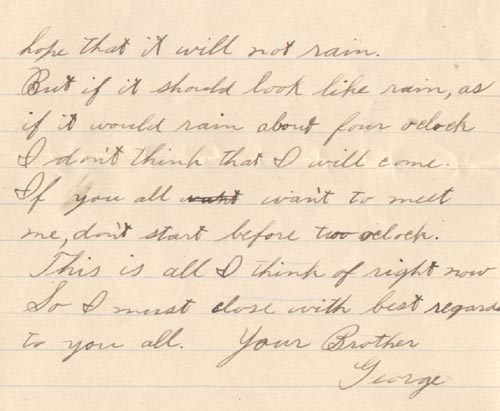 hope that it will not rain.
But if it should look like rain, as
if it would rain about four oclock
I don't think that I will come.
If you all want wan't to meet
me, don't start before two oclock.
This is all I think of right now
So I must close with best regards
to you all. Your Brother
George